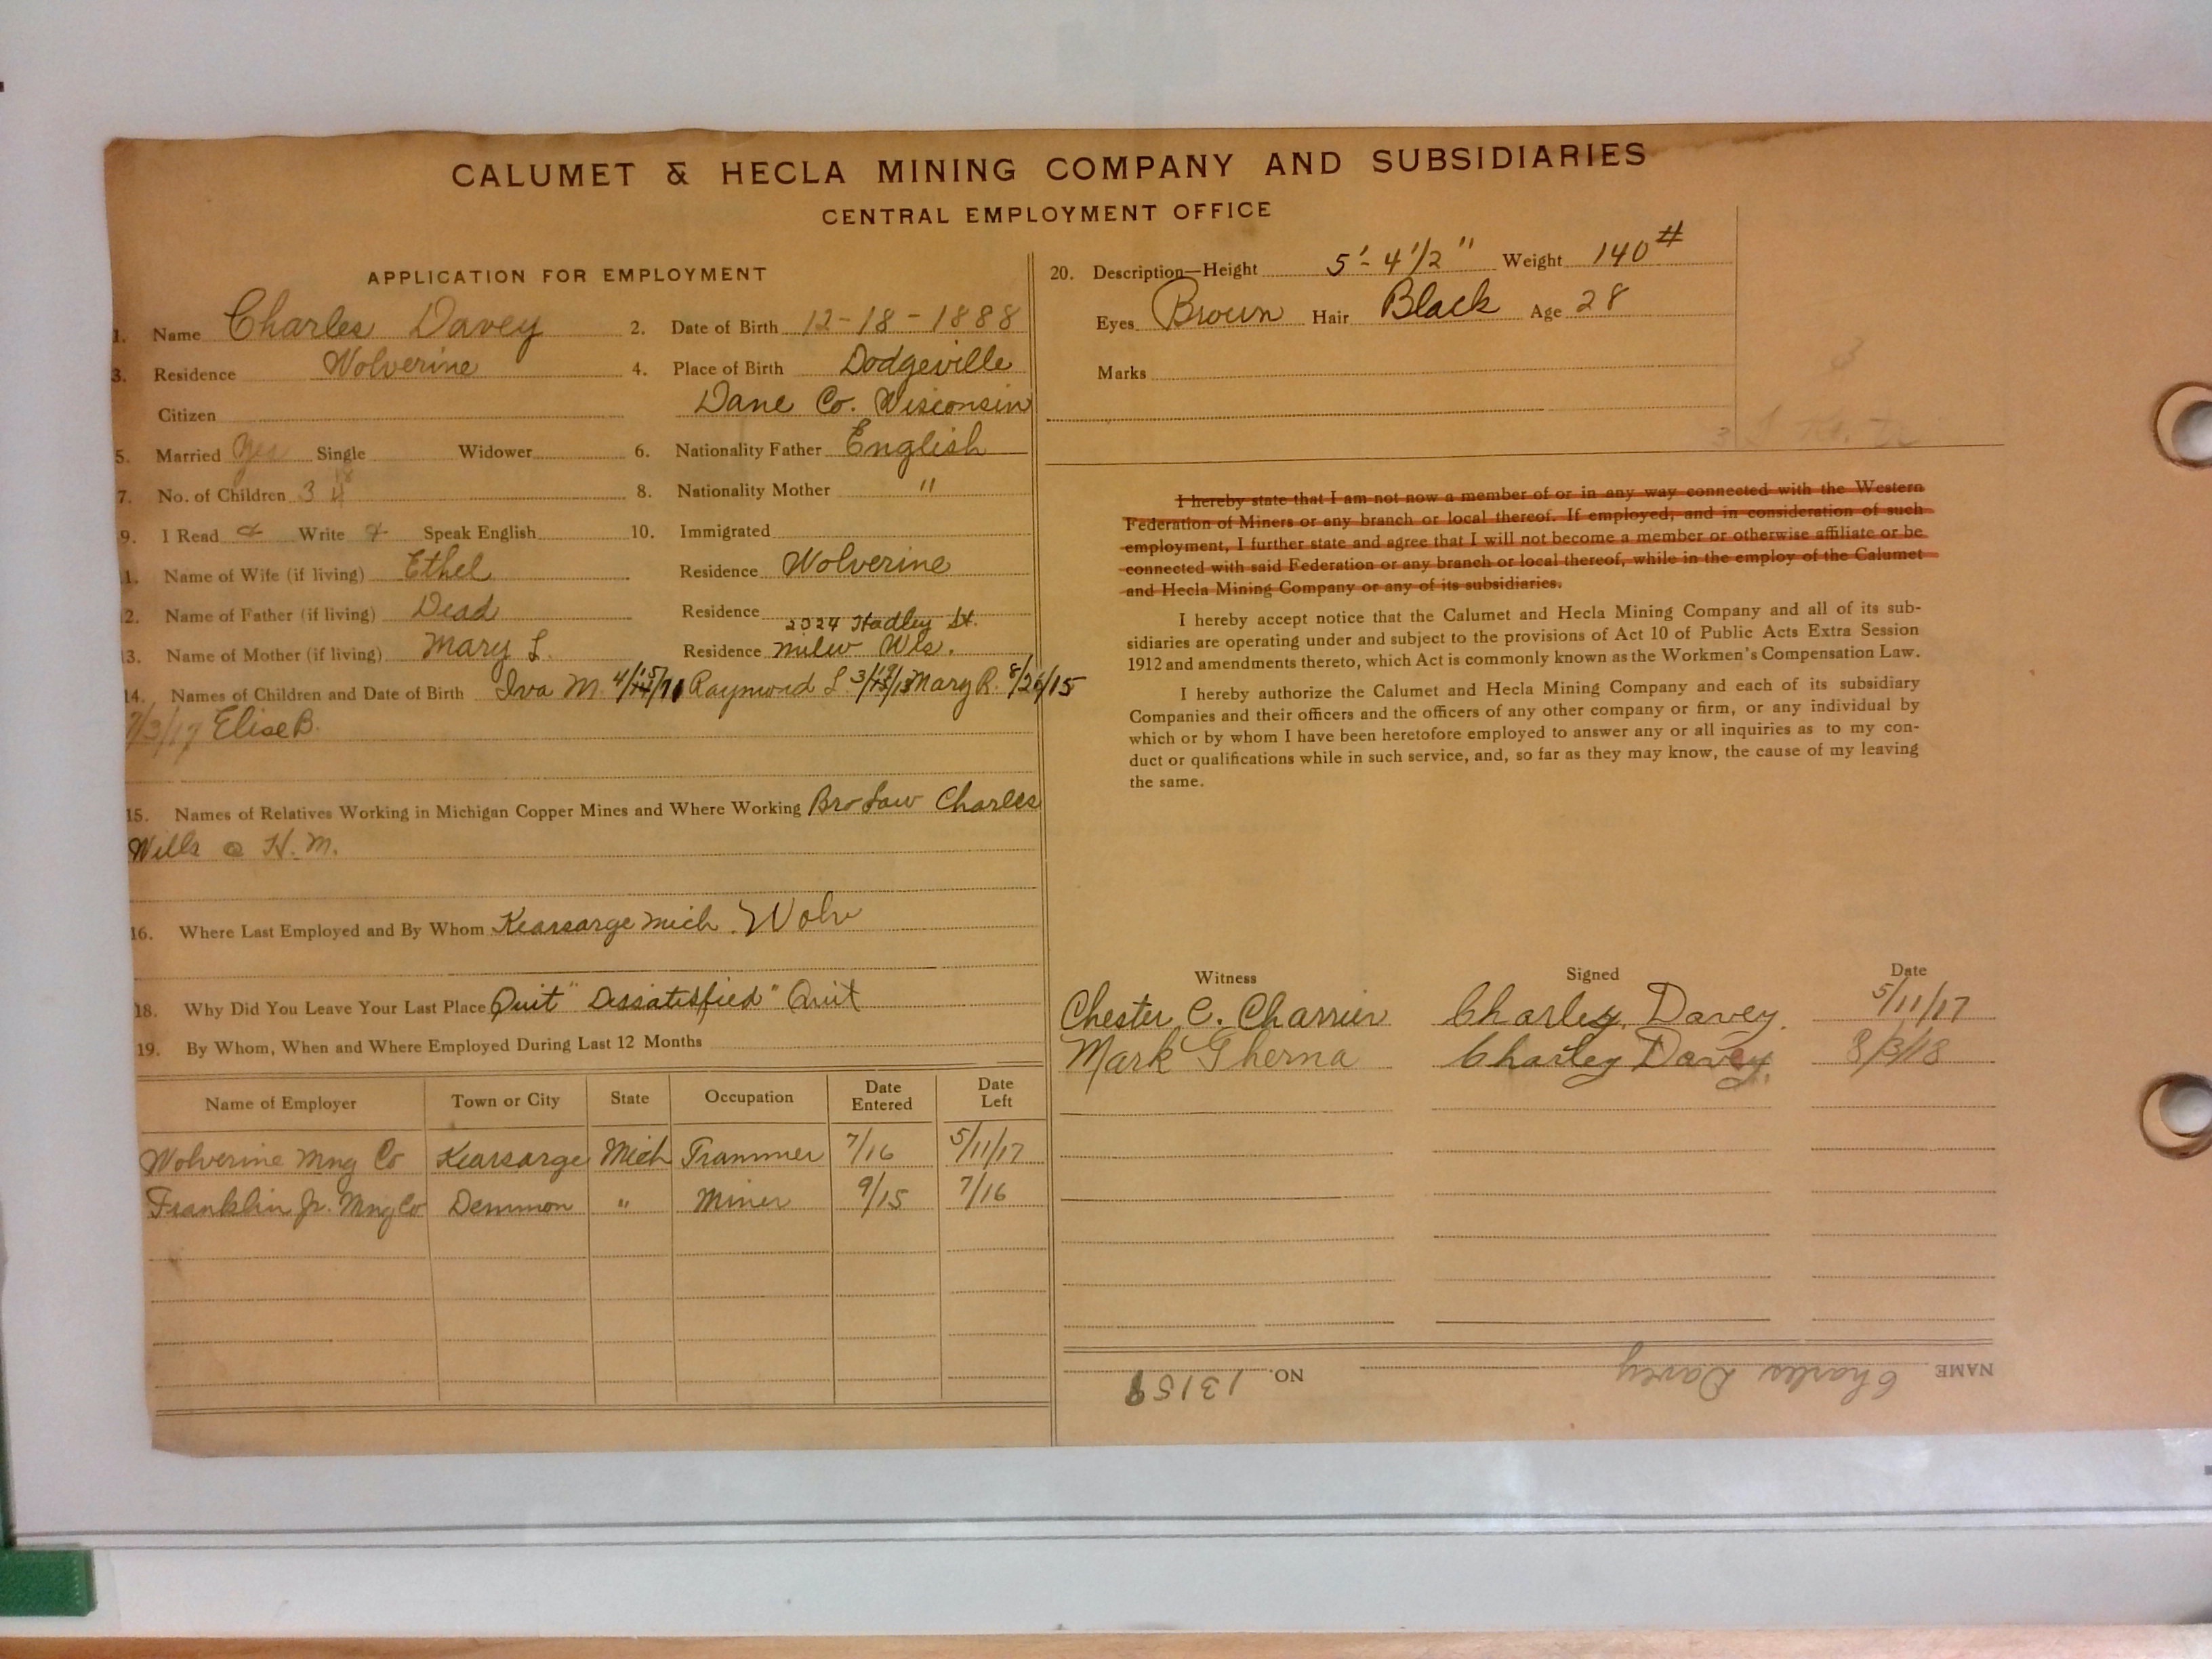 CALUMET & HECLA MINING COMPANY AND SUBSIDIARIES
CENTRAL EMPLOYMENT OFFICE
APPLICATION FOR EMPLOYMENT
1. Name Charles Davey 2. Date of Birth 12-18-1888
3. Residence Wolverine 4. Place of Birth Dodgeville
Citizen Dane Co. Wisconsin
5. Married Yes Single Widower 6. Nationality Father English
7. No. of Children 3 4 8. Nationality Mother "
9. I Read Write Speak English 10. Immigrated
1. Name of Wife (if living) Ethel Residence Wolverine
2. Name of Father (if living) Dead Residence
2024 Hadley St.
13. Name of Mother (if living) Mary L. Residence Milw Wis.
14. Names of Children and Date of Birth Iva M. Raymond L Mary R. 8/26/15
Elise B.
15. Names of Relatives Working in Michigan Copper Mines and Where Working Bro Law Charles
Wills @ H. M.
16. Where Last Employed and By Whom Kearsarge Mich. Wolv
18. Why Did You Leave Your Last Place Quit "Dissatisfied" Quit
19. By Whom, When and Where Employed During Last 12 Months
Name of Employer Town or City State Occupation Date Entered Date Left
Wolverine Mng Co Kearsarge Mich Trammer 7/16 5/11/17
Franklin Jr. Mng Co Demmon " Miner 9/15 7/16
20. Description—Height 5'-4 1/2" Weight 140#
Eyes Brown Hair Black Age 28
Marks
3
I hereby state that I am not now a member of or in any way connected with the Western
Federation of Miners or any branch or local thereof. If employed, and in consideration of such
employment, I further state and agree that I will not become a member or otherwise affiliate or be
connected with said Federation or any branch or local thereof, while in the employ of the Calumet
and Hecla Mining Company or any of its subsidiaries.
I hereby accept notice that the Calumet and Hecla Mining Company and all of its sub-
sidiaries are operating under and subject to the provisions of Act 10 of Public Acts Extra Session
1912 and amendments thereto, which Act is commonly known as the Workmen's Compensation Law.
I hereby authorize the Calumet and Hecla Mining Company and each of its subsidiary
Companies and their officers and the officers of any other company or firm, or any individual by
which or by whom I have been heretofore employed to answer any or all inquiries as to my con-
duct or qualifications while in such service, and, so far as they may know, the cause of my leaving
the same.
Witness Signed Date
Chester C. Charrier Charley Davey. 5/11/17
Mark Gherna Charley Davey. 8/3/18
NAME Charles Davey NO. 13159